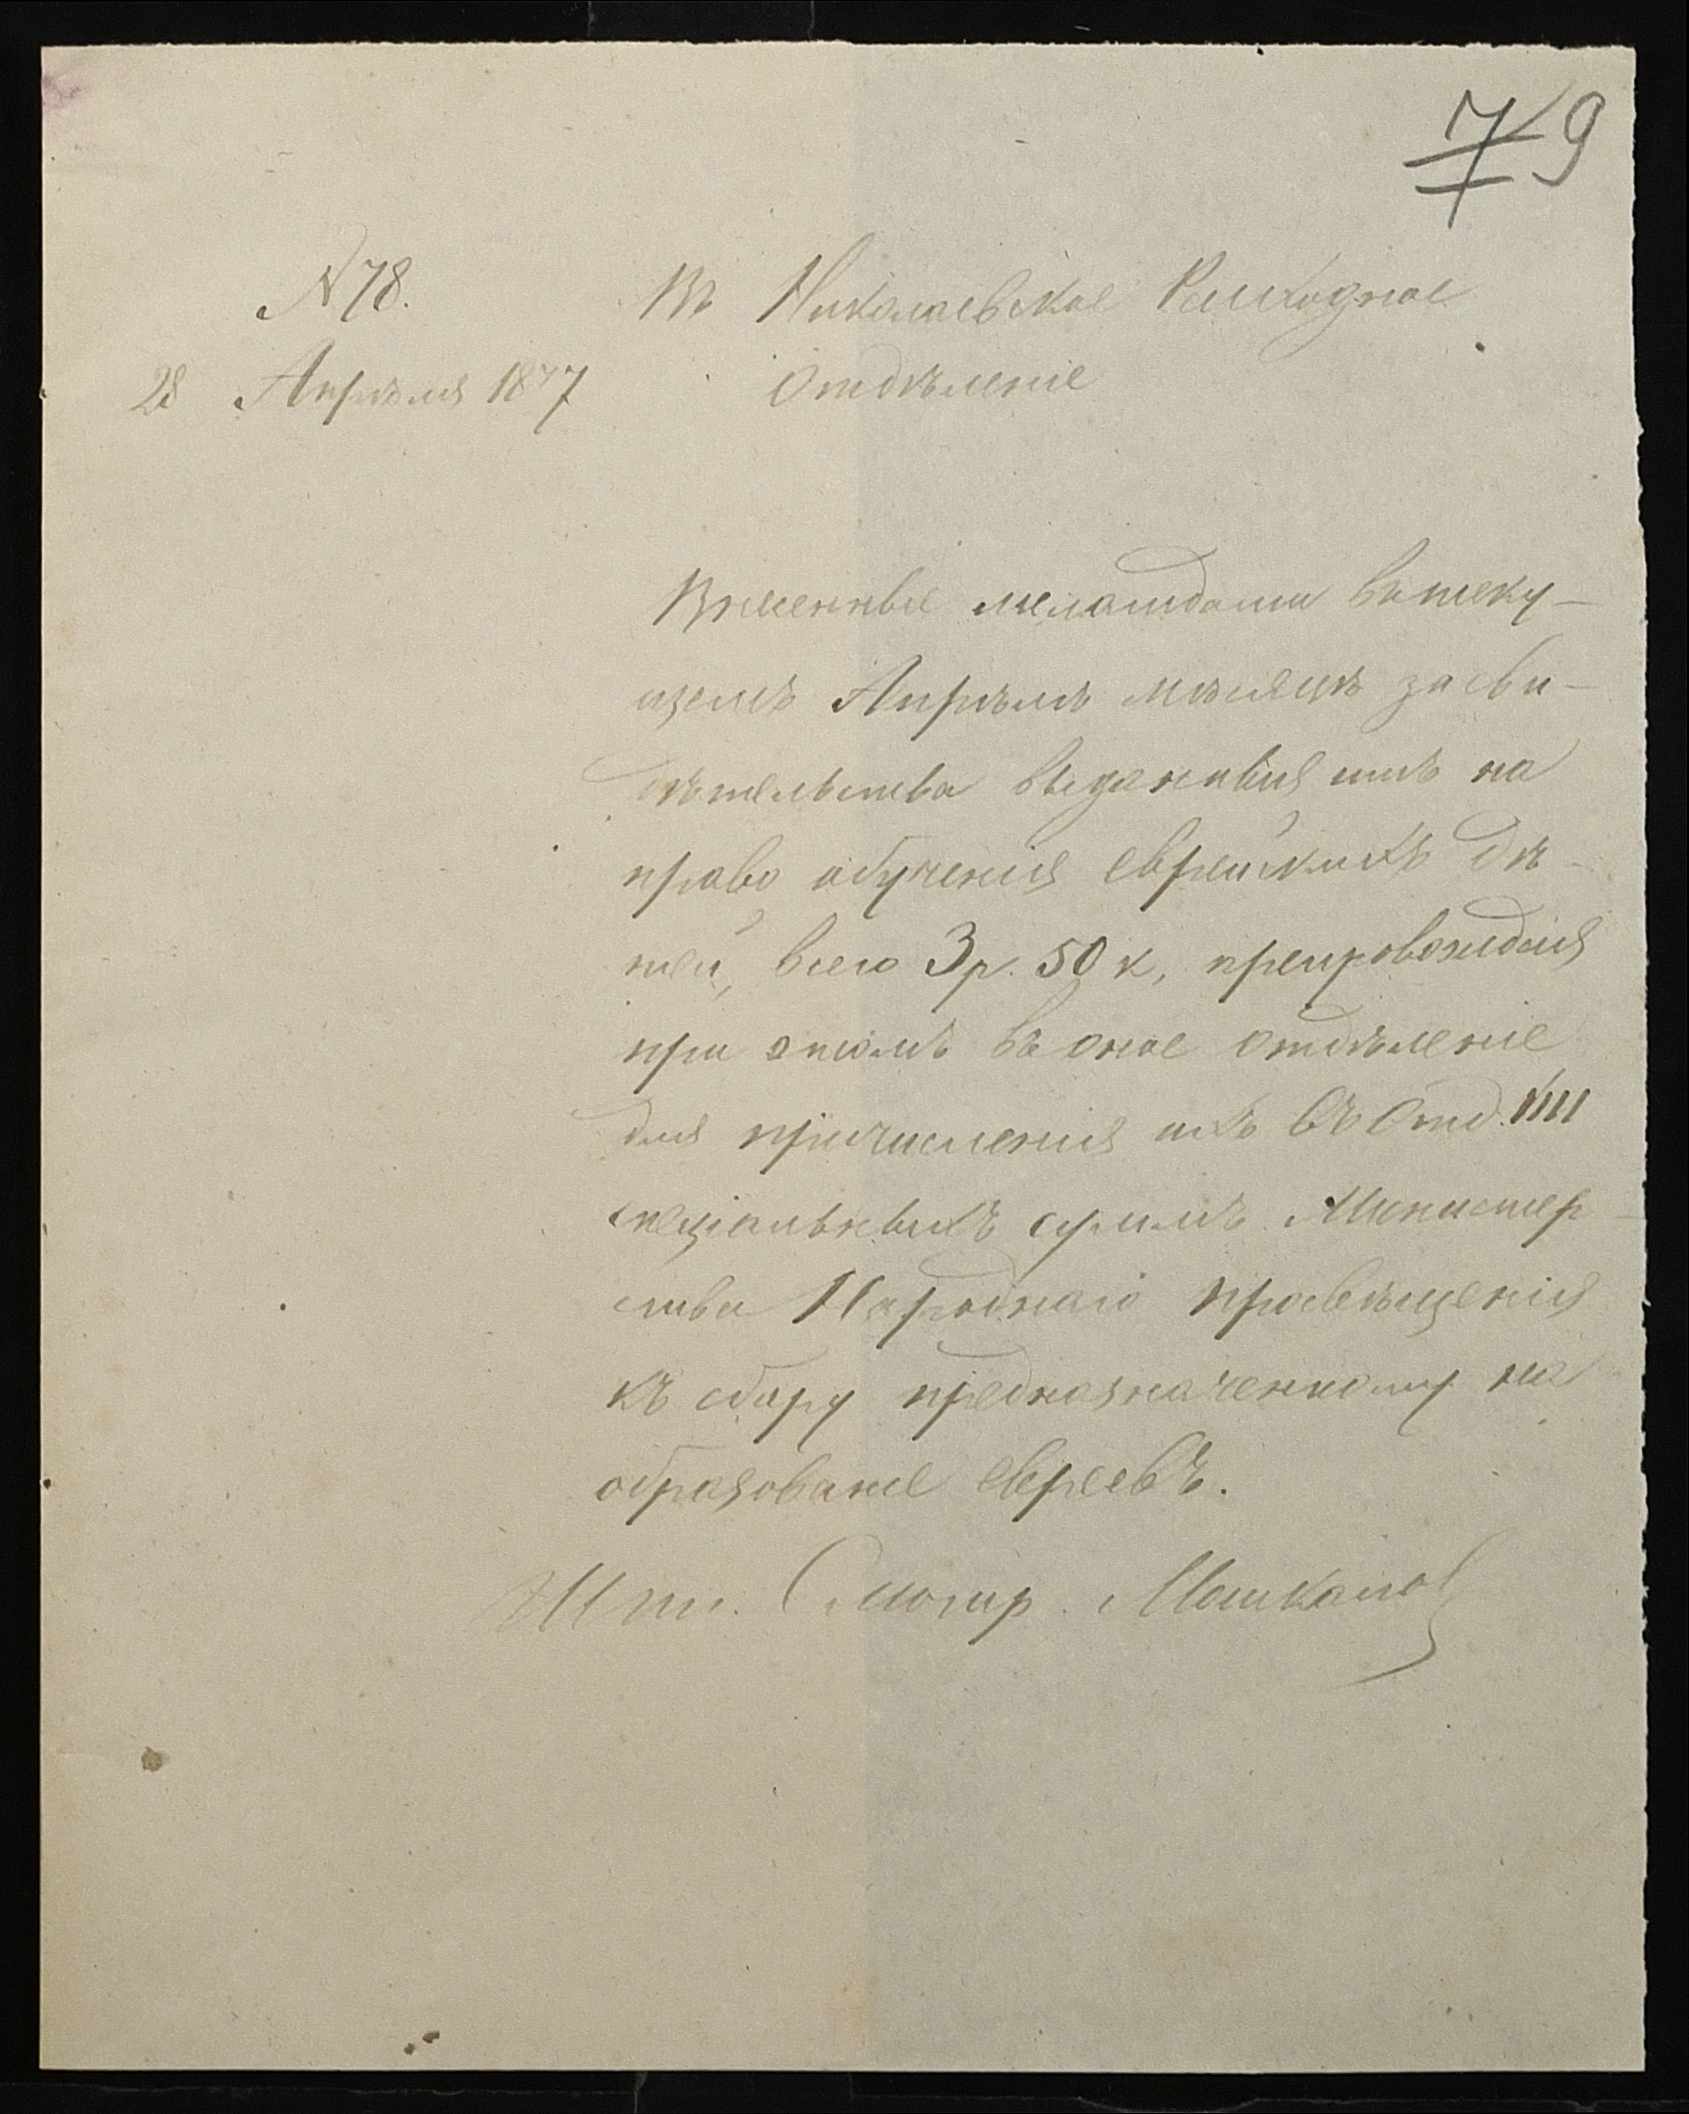 7 9
№ 78.
28 Апрѣля 1877
Въ Николаевское Расходное
Отдѣленіе
Внесенные меламдами въ теку-
щемъ Апрѣлѣ мѣсяцѣ за сви-
дѣтельства выданныя имъ на
право обученія еврейскихъ дѣ-
тей, всего 3 р. 50 к, препровождая
при этомъ въ оное отдѣленіе
для причисленія ихъ въ Отд. VIII
спеціальныхъ суммъ Министер-
ства Народнаго просвѣщенія
къ сбору предназначенному на
образованіе евреевъ.
Шт. Смотр.